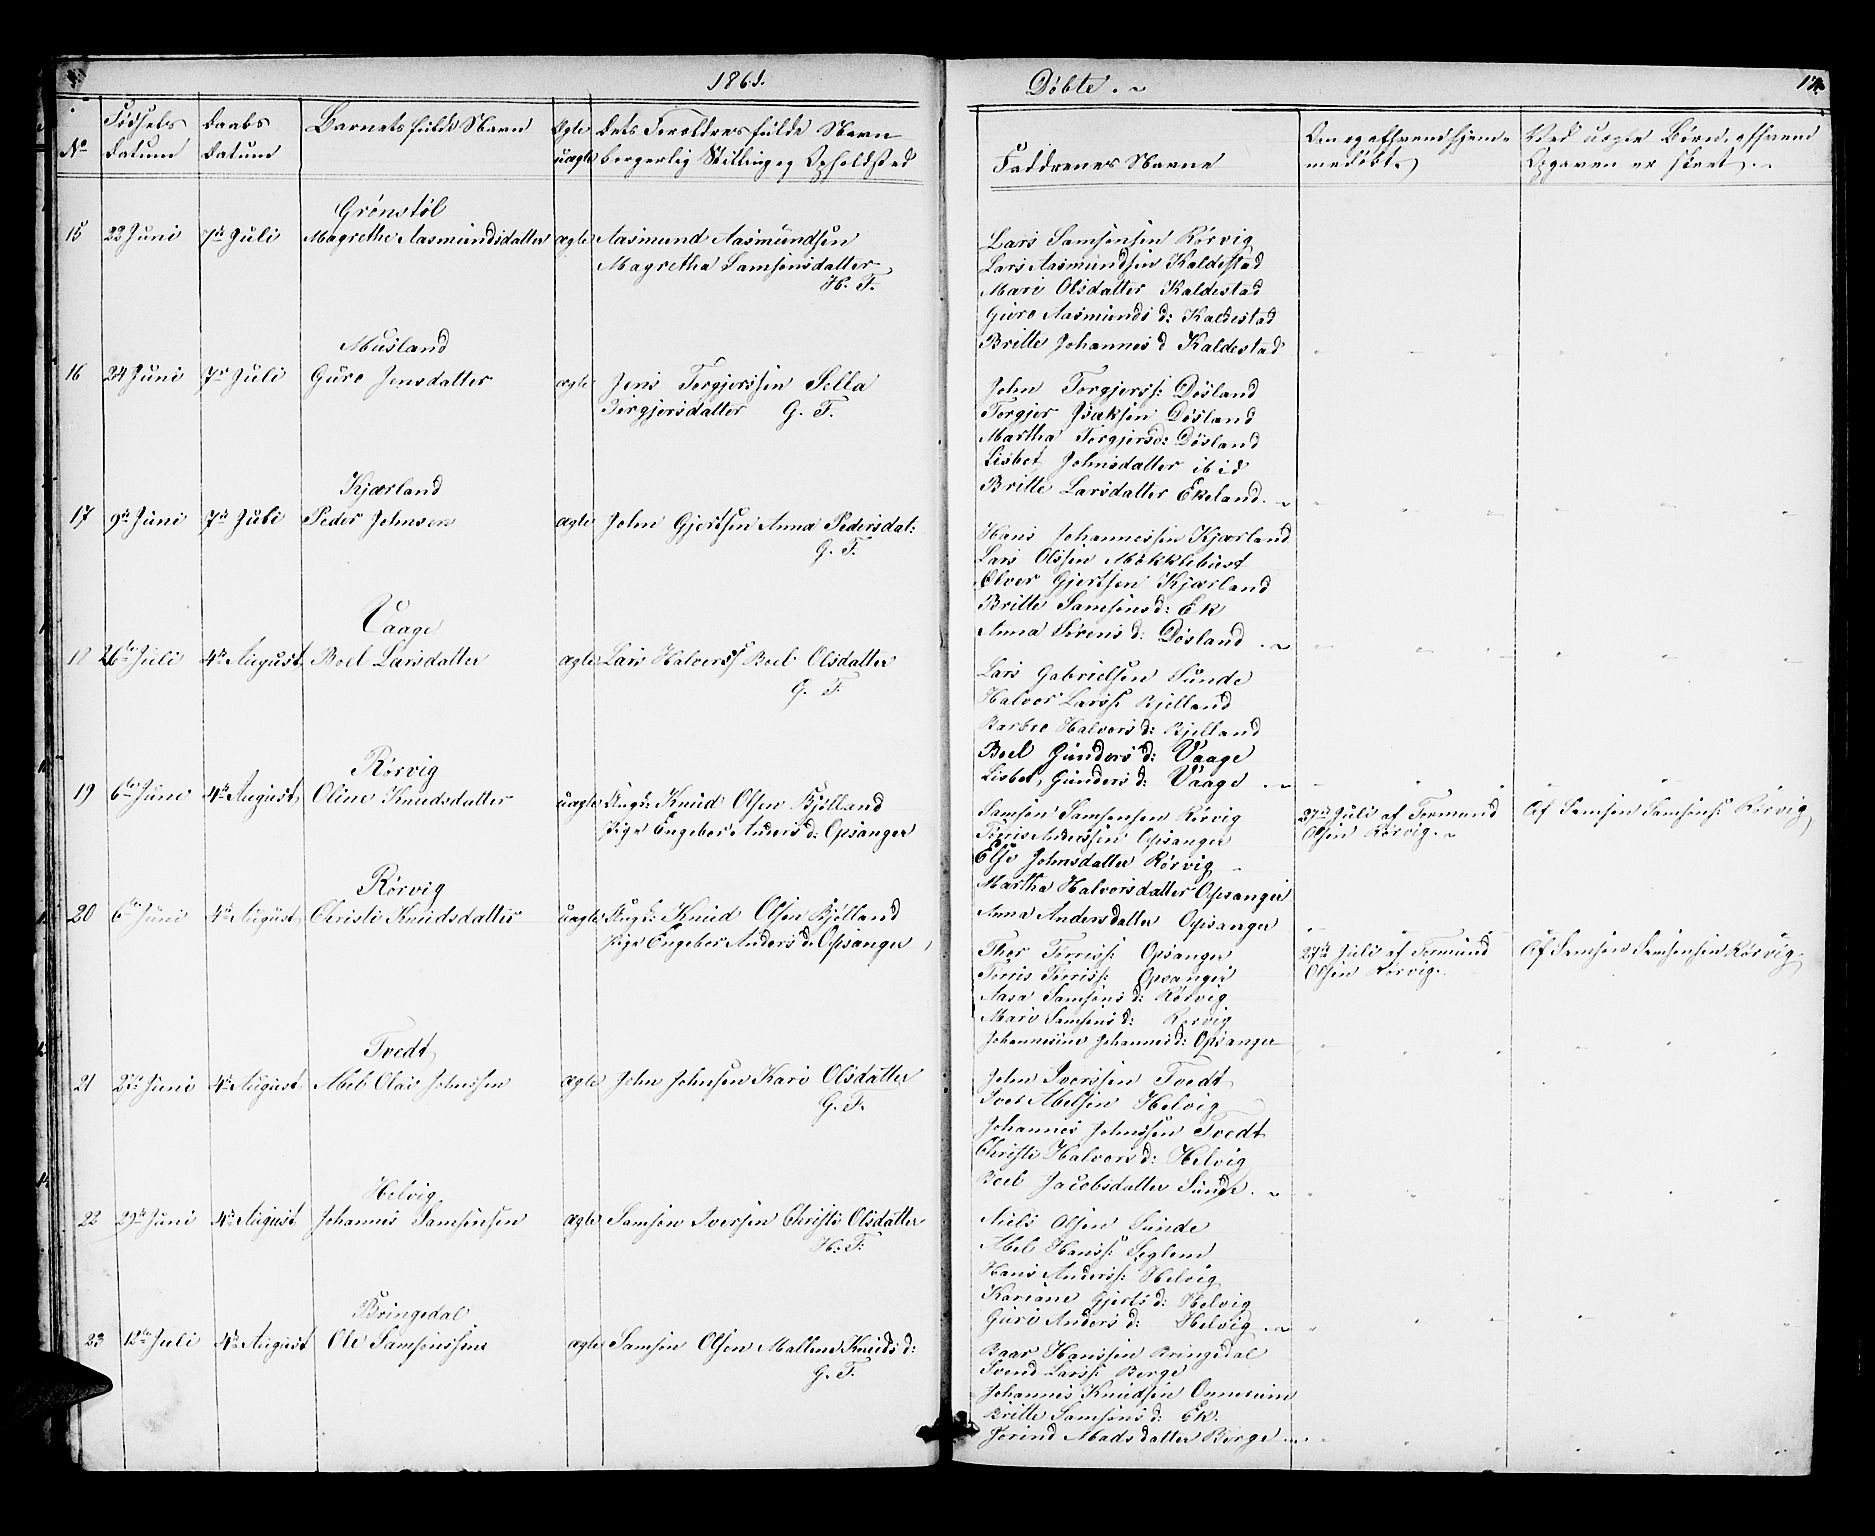 1861.
Döbte.
No
Födsels Datum
Daabs Datum
Barnets fulde Navn
Ægte uægte
Dets Forældres fulde Navn borgerlig Stilling og Opholdsted
Faddernes Navne
Om og af hvem hjemmedöbt.
Ved uægte Börn, af hvem Opgaven er skeet.
Grönstöl
15 22 Juni 7de Juli Magrethe Aasmundsdatter ægte Aasmund Aasmundsen
Magretha Samsonsdatter
H. F.
Lars Samsonsen Rörvig
Lars Aasmundsen Kaldestad
Mari Olsdatter Kaldestad
Guro Aasmunds d: Kaldestad
Britte Johannes d Kaldestad
Musland
16 24 Juni 7de Juli Guro Jensdatter ægte Jens Torgjerssen Sella
Torgjersdatter G. F.
John Torgjerss: Dösland
Torgjer Isaksen Dösland
Martha Torgjersd: Dösland
Lisbet Johnsdatter ibid
Britte Larsdatter Ekeland.
Kjærland
17 9de Juni 7de Juli Peder Johnsen ægte John Gjertsen Anna Pedersdat:
G. F.
Hans Johannessen Kjærland
Lars Olssen Mökklebust
Elver Gjertsen Kjærland
Britte Samsons d: Ek
Anna Sörens d: Dösland
Vaage
18 26de Juli 4de August Boel Larsdatter ægte Lars Halverss Boel Olsdatter
G. F.
Lars Gabrielsen Sunde
Halver Larss: Bjelland
Barbro Halvors d: Bjelland
Boel Gunders d: Vaage
Lisbet Gunders d: Vaage
Rörvig
19 6te Juni 4de August Oline Knudsdatter uægte Ungk: Knud Olsen Bjölland
Pige Engebor Anders d: Opsanger
Samson Samsonsen Rörvig
Terris Anderssen Opsanger
Else Johnsdatter Rörvig
Martha Halvorsdatter Opsanger
Anna Andersdatter Opsanger
27de Juli af Tormund
Olsen Rörvig.
Af Samson Samsons: Rörvig
Rörvig
20 6te Juni 4de August Christi Knudsdatter uægte Ungk: Knud Olsen Bjölland
Pige Engebor Anders d: Opsanger
Thor Terriss: Opsanger
Terris Terriss: Opsanger
Aasa Samsons d: Rörvig
Mari Samsons d: Rörvig
Johannesine Johannes d: Opsanger
27de Juli af Tormund
Olsen Rörvig.
Af Samson Samsonsen Rörvig
Tvedt
21 27de Juni 4de August Abel Olai Johnssen ægte John Johnsen Kari Olsdatter
G. F.
John Iverssen Tvedt
Iver Abelsen Helvig
Johannes Johnssen Tvedt
Christi Halvors d: Helvig
Boel Jacobsdatter Sunde.
Helvig
22 29de Juni 4de August Johannes Samsonsen ægte Samson Iversen Christi Olsdatter
H: F:
Niels Olsen Sunde
Abel Hanss: Seglem
Hans Anderss: Helvig
Kariane Gjerts d: Helvig
Guri Anders d: Helvig
Bringedal
23 12te Juli 4de August Ole Samsonssen ægte Samson Olsen Mallene Knuds d:
G. F.
Baar Hanssen Bringedal
Svend Larss: Berge
Johannis Knudsen Onnereim
Britte Samsons d: Ek.
Jorind Madsdatter Berge